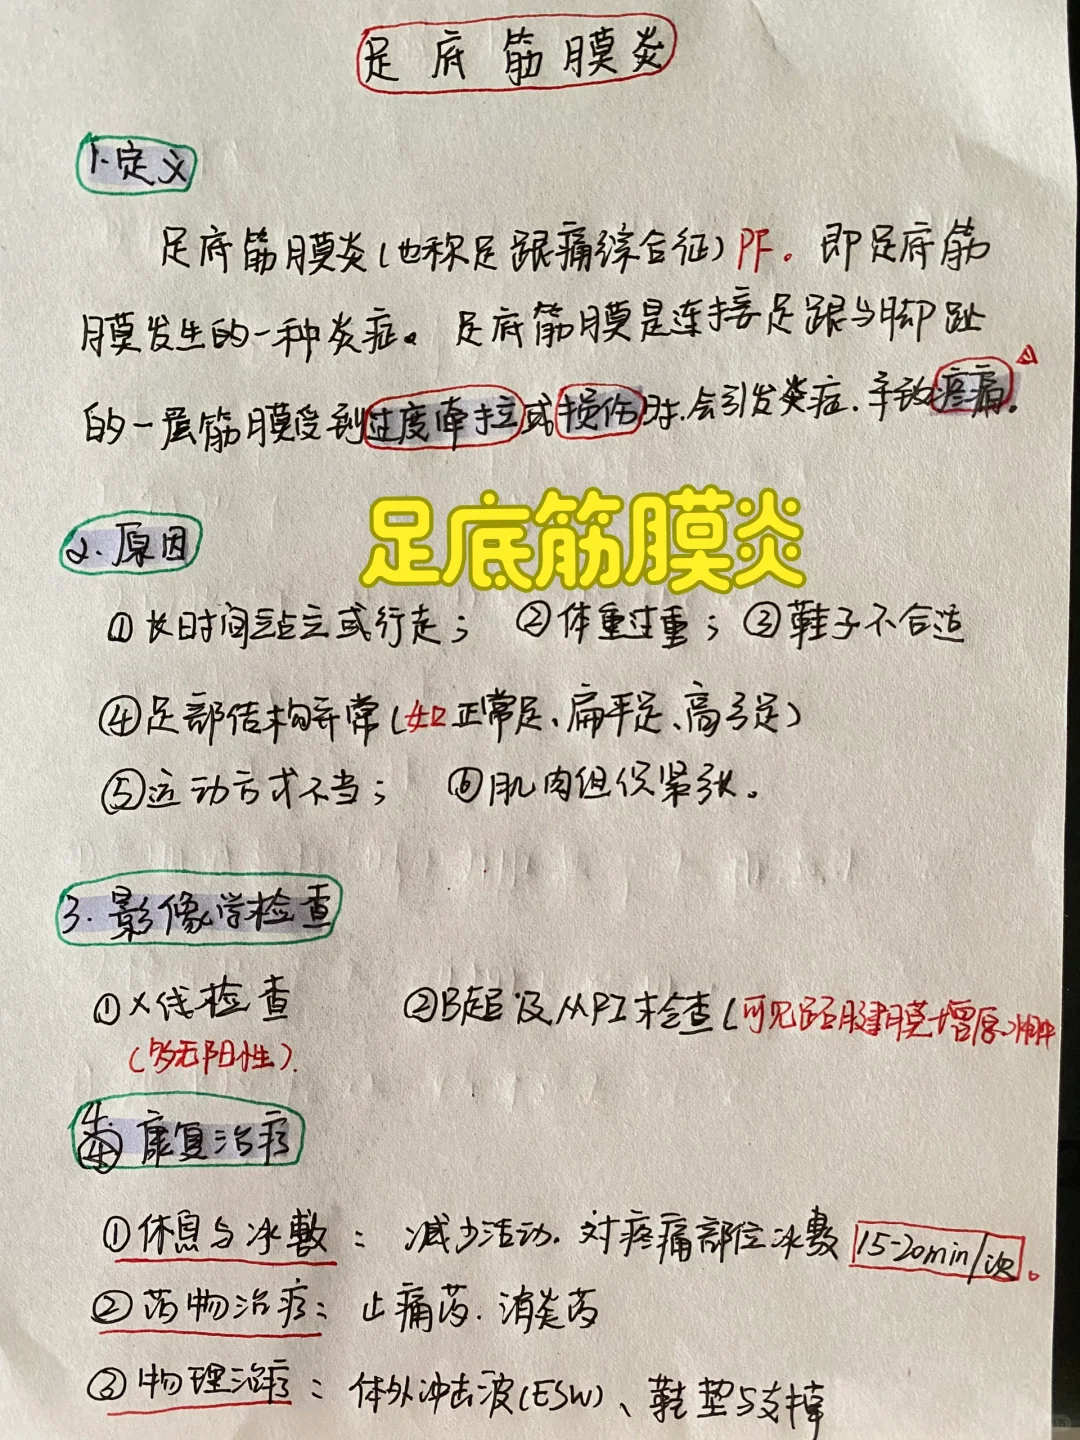 足底筋膜炎
1.定义
足底筋膜炎(也称足跟痛综合征)PF。即足底筋
膜发生的一种炎症。足底筋膜是连接足跟与脚趾
的一层筋膜受到过度牵拉或损伤时.会引发炎症.导致疼痛。
足底筋膜炎
2.原因
①长时间站立或行走; ②体重过重; ③鞋子不合适
④足部结构异常(如正常足、扁平足、高弓足)
⑤运动方式不当; ⑥肌肉组织紧张。
3.影像学检查
①X线检查 ②B超及MRI检查(可见跖腱膜增厚、肿
(多无阳性).
4.康复治疗
①休息与冰敷: 减少活动.对疼痛部位冰敷15-20min/次。
②药物治疗: 止痛药.消炎药
③物理治疗: 体外冲击波(ESW)、鞋垫与支撑